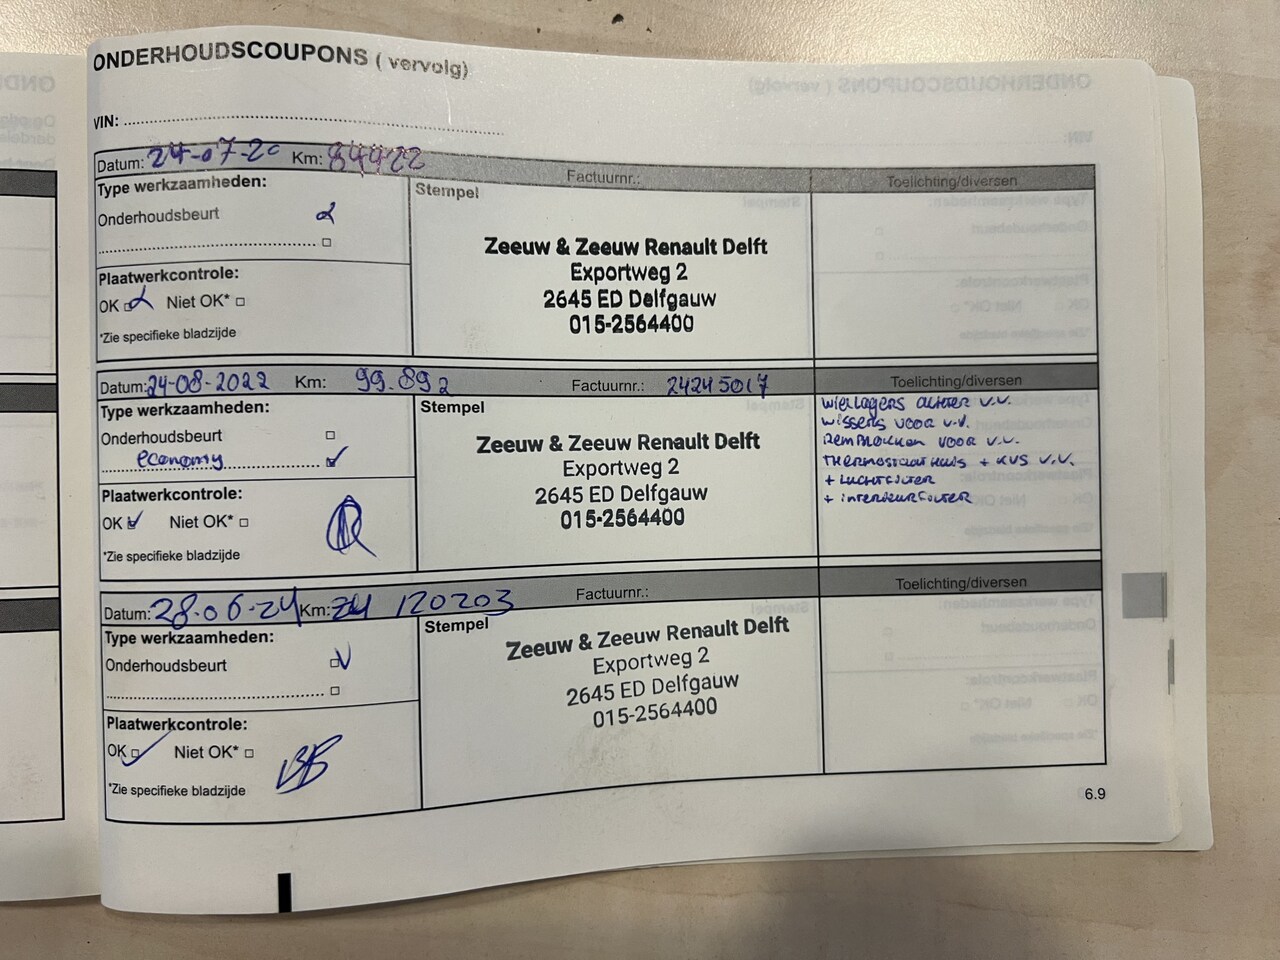 ONDERHOUDSCOUPONS ( vervolg)
VIN:
Datum: 24-07-20 Km: 84922 Factuurnr.: Toelichting/diversen
Type werkzaamheden:
Onderhoudsbeurt
Plaatwerkcontrole:
OK Niet OK*
*Zie specifieke bladzijde
Stempel
Zeeuw & Zeeuw Renault Delft
Exportweg 2
2645 ED Delfgauw
015-2564400
Datum: 24-08-2022 Km: 99.892 Factuurnr.: 24245017 Toelichting/diversen
Type werkzaamheden:
Onderhoudsbeurt
economy
Plaatwerkcontrole:
OK Niet OK*
*Zie specifieke bladzijde
Stempel
Zeeuw & Zeeuw Renault Delft
Exportweg 2
2645 ED Delfgauw
015-2564400
wiellagers achter v.v.
wissers voor v.v.
remblokken voor v.v.
thermostaathuis + kvs v.v.
+ luchtfilter
+ interieurfilter
Datum: 28-06-24 Km: 120203 Factuurnr.: Toelichting/diversen
Type werkzaamheden:
Onderhoudsbeurt
Plaatwerkcontrole:
OK Niet OK*
*Zie specifieke bladzijde
Stempel
Zeeuw & Zeeuw Renault Delft
Exportweg 2
2645 ED Delfgauw
015-2564400
6.9